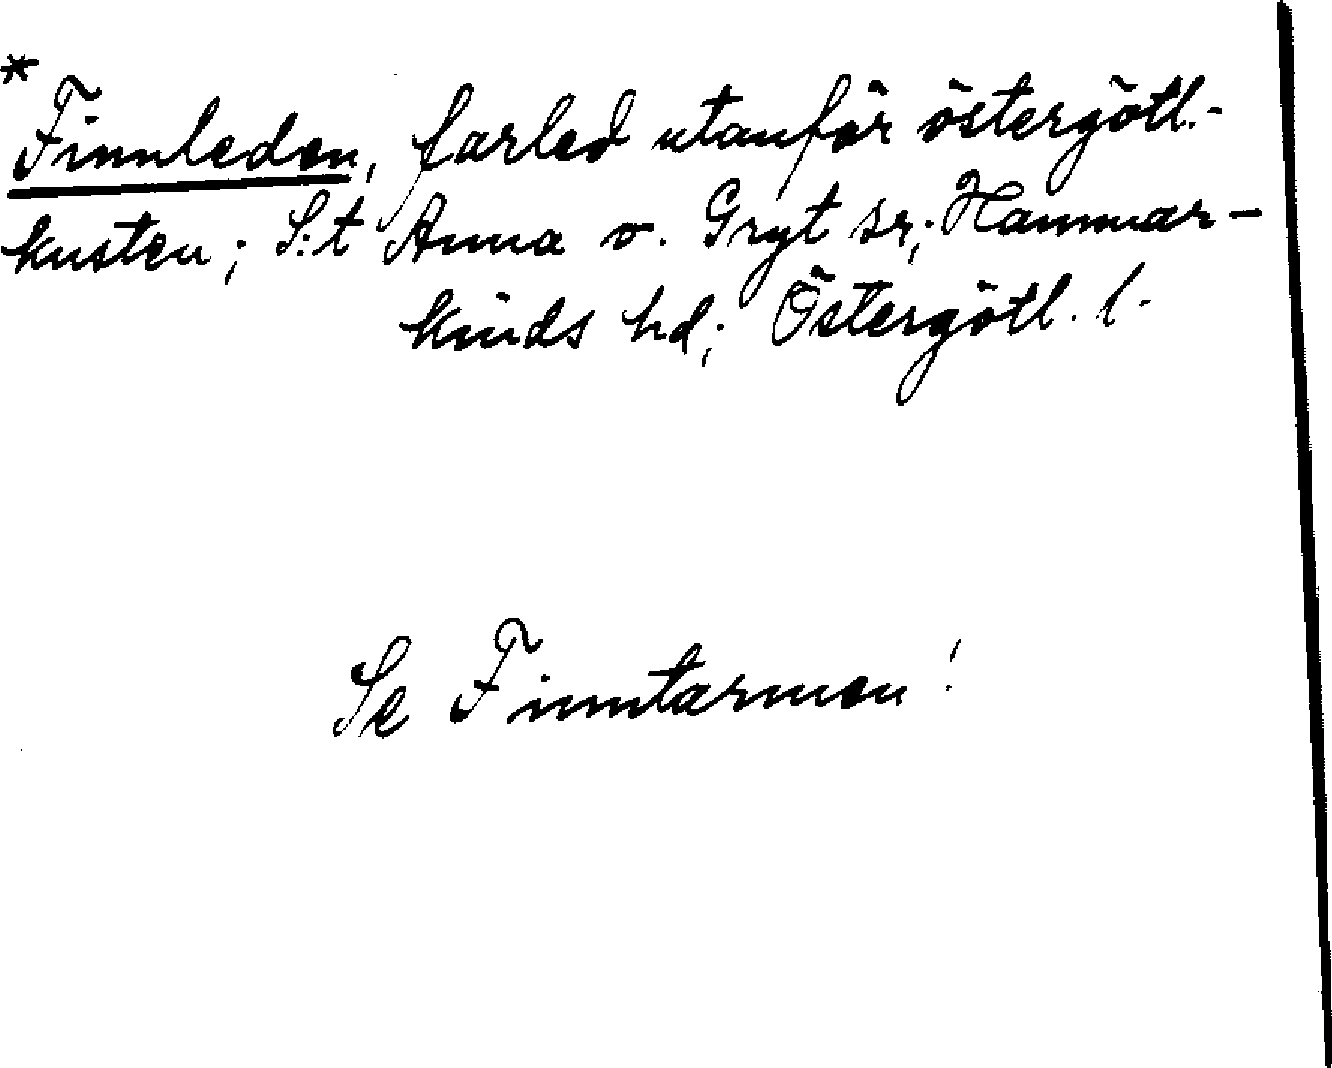 * Finnleden, farled utanför östergötl.-
kusten; S:t Anna o. Gryt sr; Hammar-
kinds hd; Östergötl. l.
Se Finntarmen!